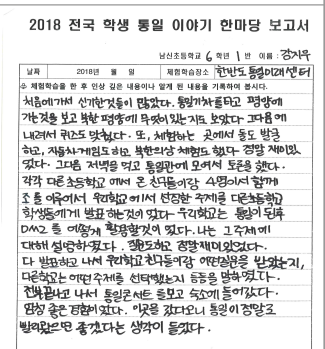 2018 전국 학생 통일 이야기 한마당 보고서
남신초등학교 6 학년 1 반 이름 : 강지우
날짜 2018년 월 일 체험학습장소 한반도통일미래센터
※ 체험학습을 한 후 인상 깊은 내용이나 알게 된 내용을 기록하여 봅시다.
처음에 가서 신기한것들이 많았다. 통일기차를타고 평양에
가는것을 보고 북한 평양에 무엇이있는지도 보았다 그다음에
내려서 퀴즈도 맞췄다. 또, 체험하는 곳에서 총도 발을
하고, 자동차게임도하고 북한의상 체험도 했다. 정말 재미있
었다. 그다음 저녁을 먹고 통일관에 모여서 토론을 했다.
각각 다른초등학교에서 온 친구들이랑 4명이서 함께
조를 이루어서 우리학교에서 선정한 주제를 다른초등학교
학생들에게 발표하는것이 었다. 우리학교는 통일이 된후
DMZ를 어떻게 활용할것이 였다. 나는 그주제에
대해 설명하였다. 정말도하고 정말재미있었다.
다 발표하고 나서 우리학교친구들이랑 어떤질문을 받았는지,
다른학교는 어떤주제를 선택했는지 등등을 말하였다.
전부끝나고 나서 통일콘서트를보고 숙소에 들어갔다.
엄청 좋은 경험이었다. 이곳을 갔다오니 통일이 정말로
빨리왔으면 좋겠다는 생각이 들었다.